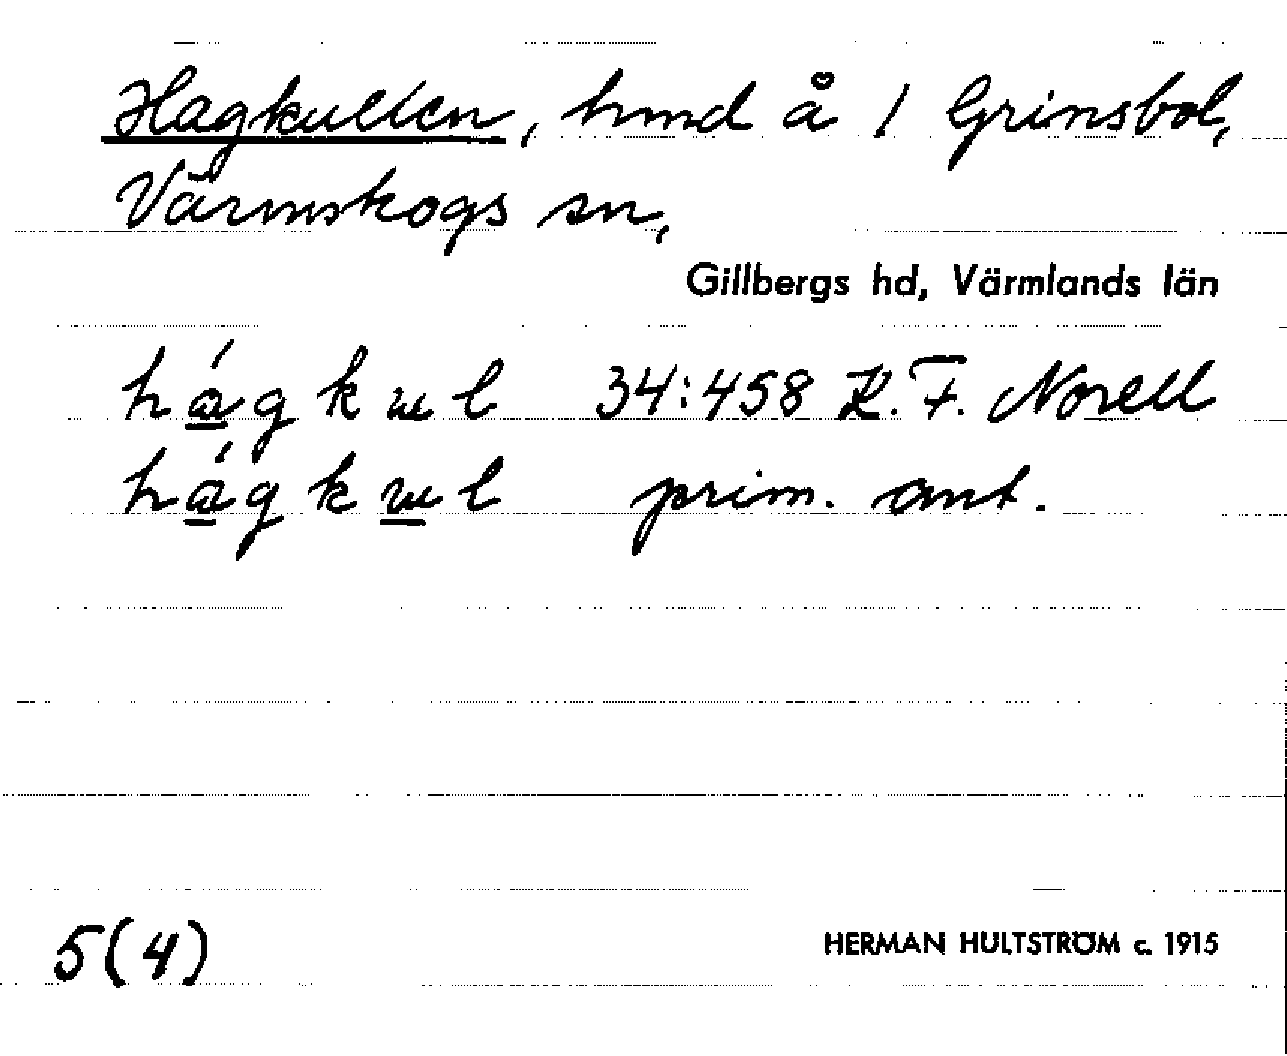 Hagkullen, hmd å 1 Grinsbol,
Värmskogs sn,
Gillbergs hd, Värmlands län
hágkul 34:458 K. F. Norell
hágkul prim. ant.
5(4) HERMAN HULTSTRÖM c. 1915